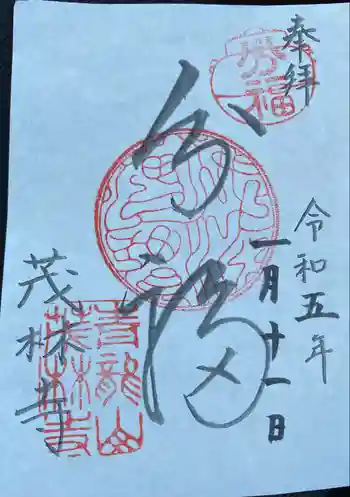 奉拝
分福
令和五年
一月十一日
分福
茂林寺
青龍山
茂林寺